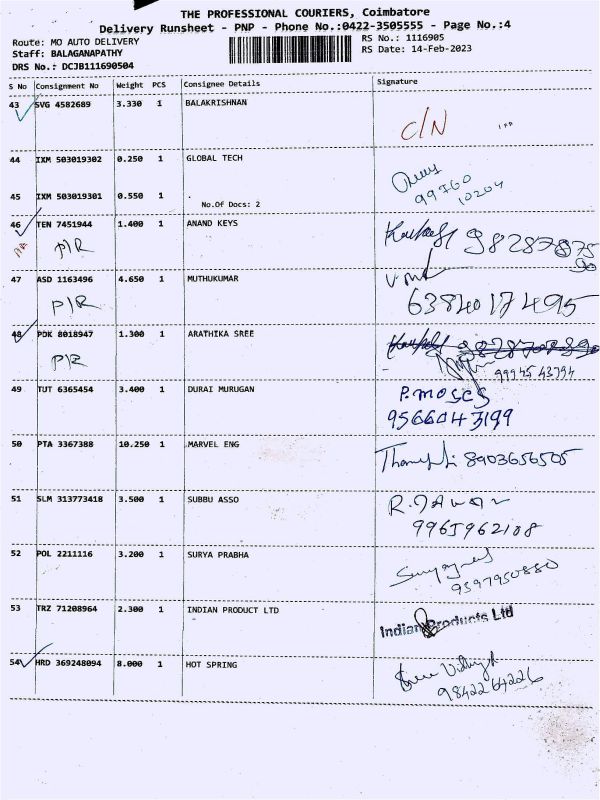 THE PROFESSIONAL COURIERS, Coimbatore
Delivery Runsheet - PNP - Phone No.:0422-3505555 - Page No.:4
Route: MO AUTO DELIVERY RS No.: 1116905
Staff: BALAGANAPATHY RS Date: 14-Feb-2023
DRS No.: DCJB111690504
S No Consignment No Weight PCS Consignee Details Signature
43 SVG 4582689 3.330 1 BALAKRISHNAN
C/N
44 IXM 503019302 0.250 1 GLOBAL TECH
45 IXM 503019301 0.550 1 .
No.Of Docs: 2
99760
10204
46 TEN 7451944 1.400 1 ANAND KEYS
P/R
47 ASD 1163496 4.650 1 MUTHUKUMAR
P/R 6384017495
48 PDK 8018947 1.300 1 ARATHIKA SREE
P/R 99945 43794
49 TUT 6365454 3.400 1 DURAI MURUGAN
P.MOSES
9566043199
50 PTA 3367388 10.250 1 MARVEL ENG
8903656505
51 SLM 313773418 3.500 1 SUBBU ASSO
9965962108
52 POL 2211116 3.200 1 SURYA PRABHA
9597950880
53 TRZ 71208964 2.300 1 INDIAN PRODUCT LTD
Indian Products Ltd
54 HRD 369248094 8.000 1 HOT SPRING
9842264226